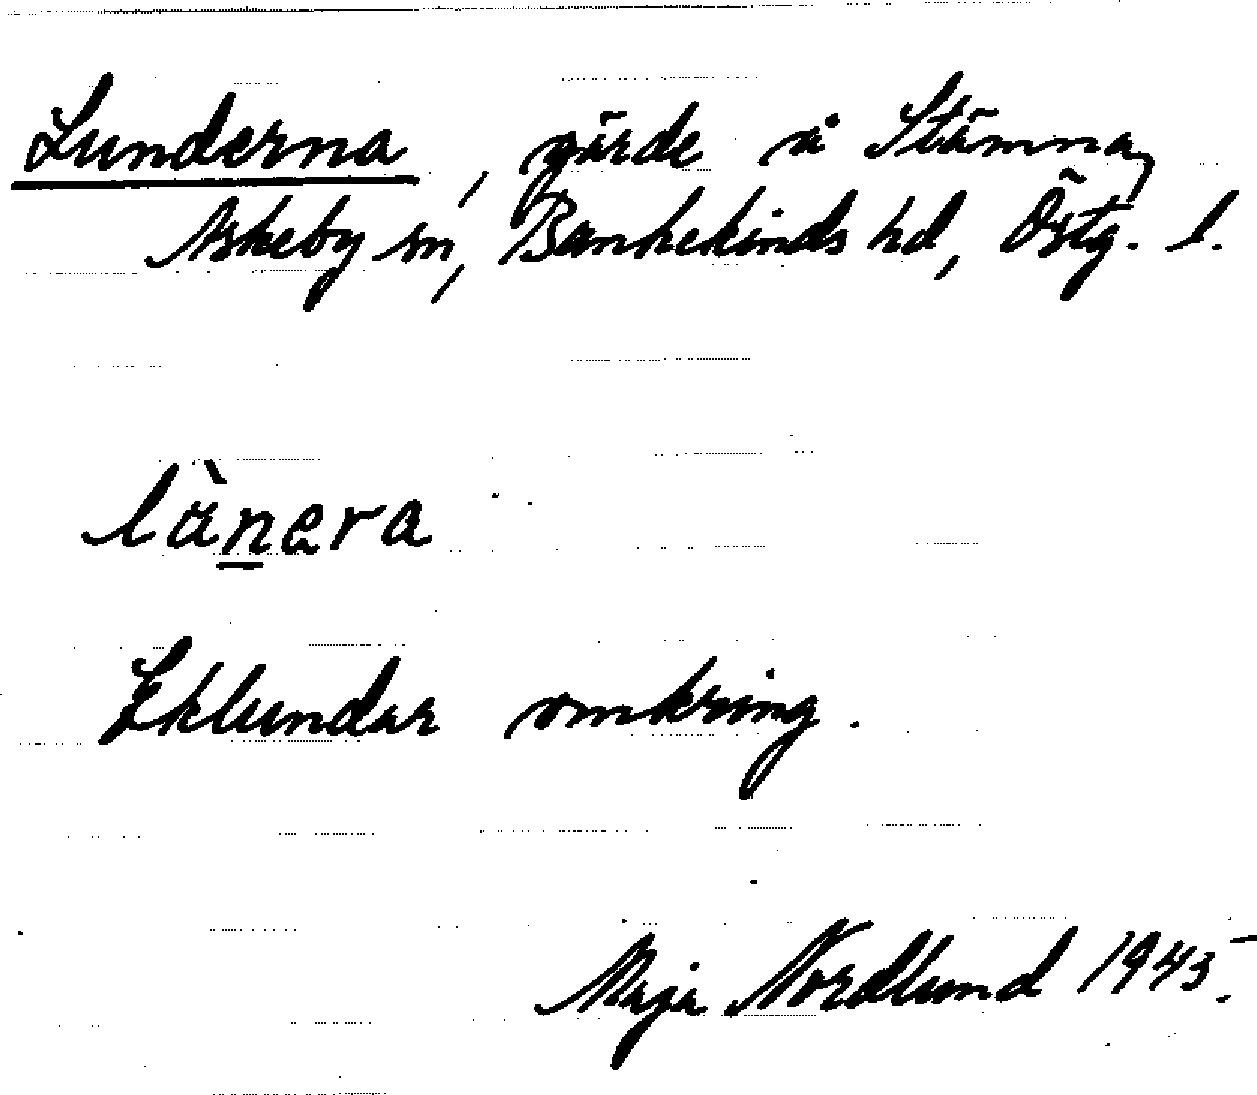 Lunderna, gärde å Stämna,
Askeby sn, Bankekinds hd, Östg. l.
lä̀nera
Eklundar omkring.
Maja Nordlund 1945.